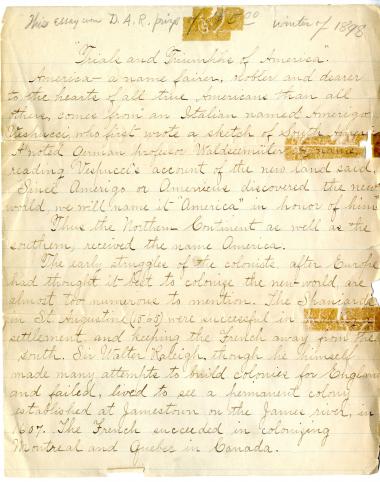 This essay won D.A.R. prize of $5.00 winter of 1898
"Trials and Triumphs of America".
America - a name fairer, nobler and dearer
to the hearts of all true Americans than all
others, comes from an Italian named Amerigo
Vespucci, who first wrote a sketch of South Amer
A noted German professor Waldseemüller
reading Vespucci's account of the new land said,
"Since Amerigo or Americus discovered the new
world, we will name it "America" in honor of him"
Thus the Northern Continent as well as the
southern, received the name America.
The early struggles of the colonists, after Europe
had thought it best to colonize the new world, are
almost too numerous to mention. The Spaniards
in St. Augustine (1565) were successful in
settlement, and keeping the French away from the
south. Sir Walter Raleigh, though he himself
made many attempts to build colonies for England
and failed, lived to see a permanent colony
established at Jamestown on the James river, in
1607. The French succeeded in colonizing
Montreal and Quebec in Canada.